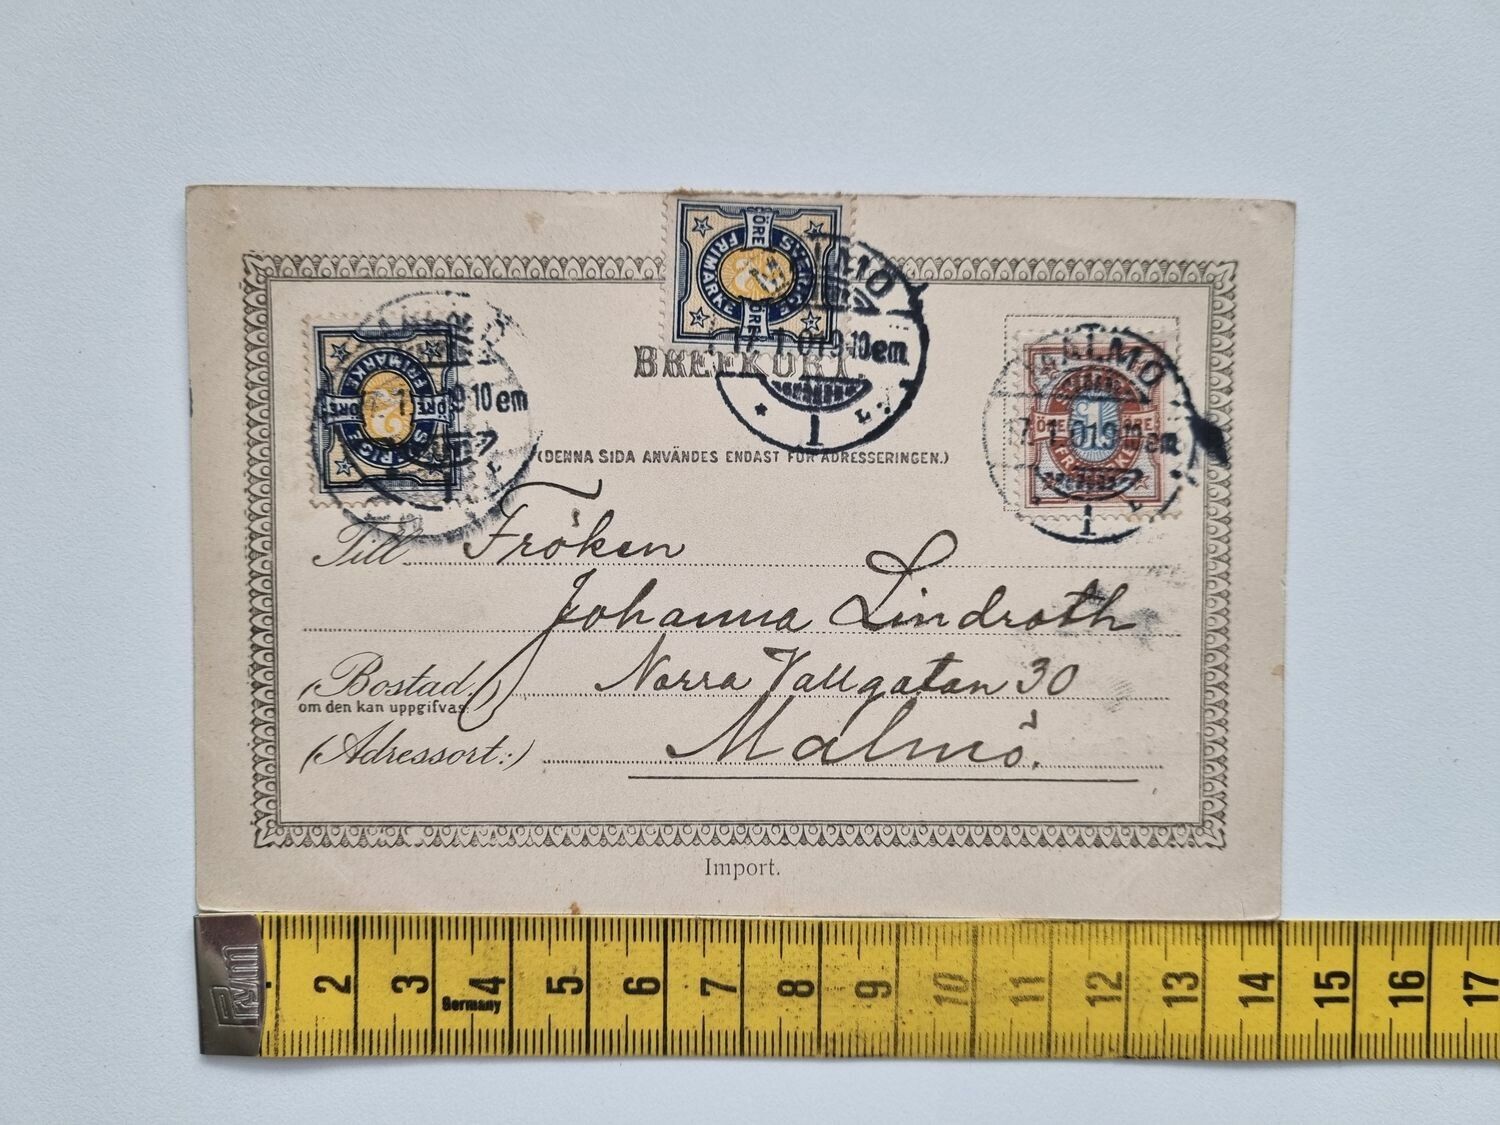 SVERIGE
FRIMÄRKE
2
ÖRE
ÖRE
MALMÖ
17 1 01 9-10 em
1
BREFKORT.
SVERIGE
FRIMÄRKE
2
ÖRE
ÖRE
1 9-10 em
MALMÖ
17 1 01 9-10 em
1
1
ÖRE
ÖRE
FRIMÄRKE
(DENNA SIDA ANVÄNDES ENDAST FÖR ADRESSERINGEN.)
Till Fröken
Johanna Lindroth
(Bostad.) Norra Vallgatan 30
om den kan uppgifvas.
(Adressort:) Malmö.
Import.
Prym
2 3 4 5 6 7 8 9 10 11 12 13 14 15 16 17
Germany